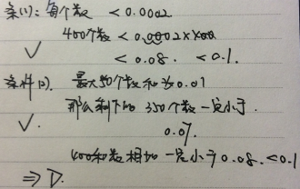 条(1): 每个数 < 0.0002
400个数 < 0.0002×400
✓ < 0.08. < 0.1.
条件(2). 最大50个数和为0.01
那么剩下的 350个数一定小于.
✓. 0.07.
400个数相加一定小于0.08. < 0.1
⇒ D.